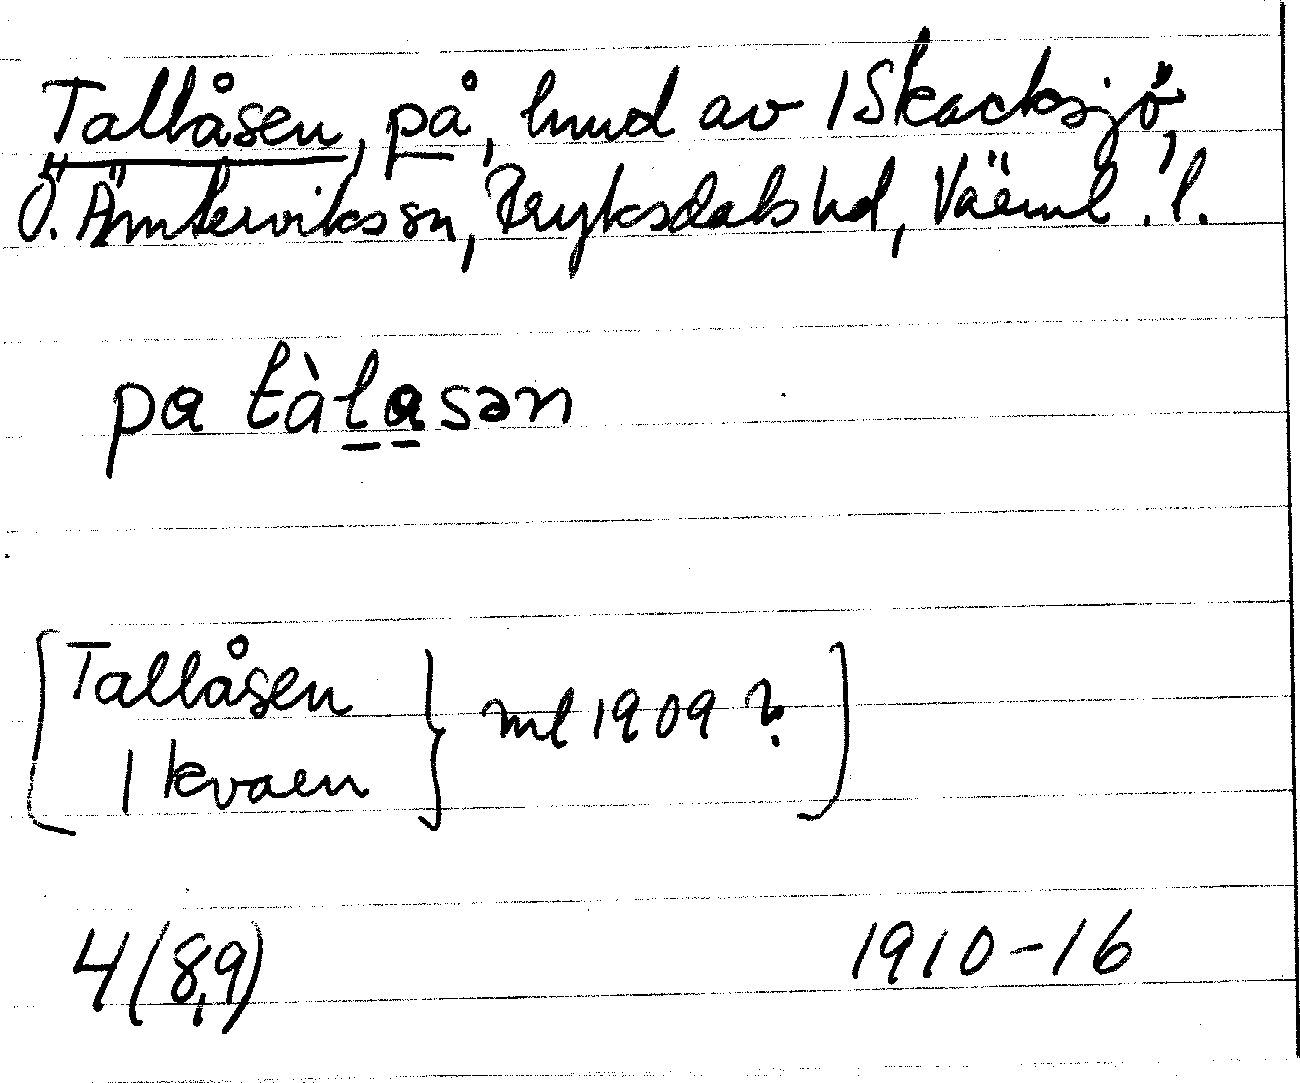 Tallåsen, på, hmd av 1 Skacksjö,
Ö. Ämterviks sn, Fryksdals hd, Värml. l.
pa tàlasən
[Tallåsen
1 kvarn } ml 1909 ?]
4(8,9) 1910-16